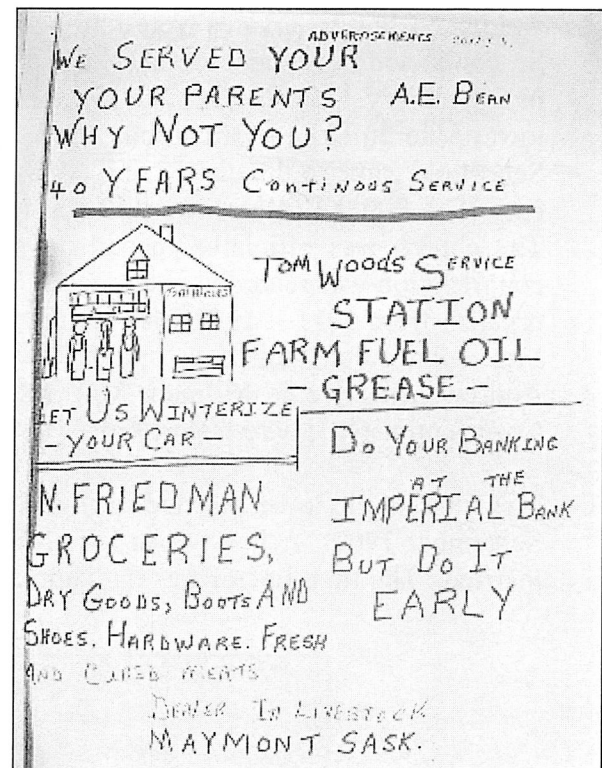 ADVERTISEMENTS
WE SERVED YOUR
YOUR PARENTS A.E. BEAN
WHY NOT YOU?
40 YEARS CONTINOUS SERVICE
TOM WOODS SERVICE
STATION
FARM FUEL OIL
- GREASE -
LET US WINTERIZE
- YOUR CAR -
DO YOUR BANKING
AT THE
IMPERIAL BANK
BUT DO IT
EARLY
N. FRIEDMAN
GROCERIES,
DRY GOODS, BOOTS AND
SHOES. HARDWARE. FRESH
AND CURED MEATS
DEALER IN LIVESTOCK
MAYMONT SASK.